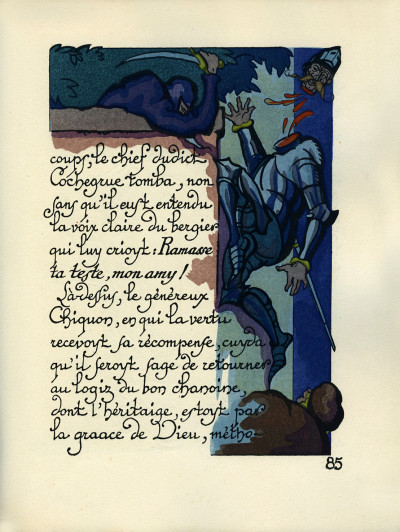 coups, le chief dudict
Cochegrue tomba, non
sans qu'il eust entendu
la voix claire du bergier
qui luy crioyt : Ramasse
ta teste, mon amy !
Là-dessus, le généreux
Chiquon, en qui la vertu
recevoyt sa récompense, cuyda
qu'il seroyt sage de retourner
au logiz du bon chanoine,
dont l'héritaige, estoyt par
la graace de Dieu, métho-
85